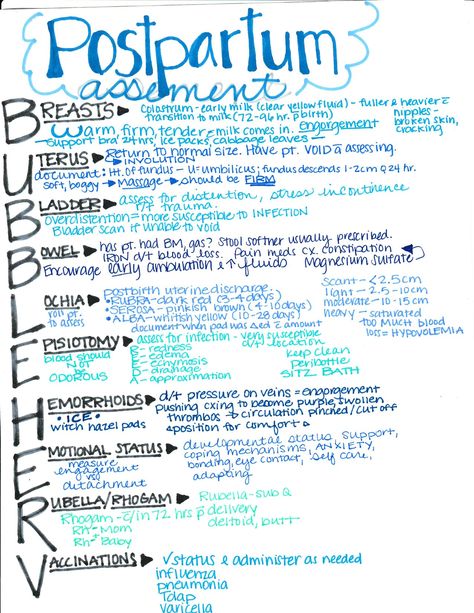 Postpartum
assement
BREASTS ▶ Colostrum - early milk (clear yellow fluid) - fuller & heavier &
transition to milk (72-96 hr. p̄ birth) nipples -
broken skin,
cracking
Warm, firm, tender & milk comes in. engorgement
support bra 24hrs, ice packs, cabbage leaves
UTERUS ▶ Return to normal size. Have pt. VOID ā assessing.
INVOLUTION
document: Ht. of fundus - U = umbilicus; fundus descends 1-2cm q 24 hr.
soft, boggy → Massage → should be FIRM
BLADDER ▶ assess for distention, stress incontinence
r/t trauma.
overdistention = more susceptible to INFECTION
Bladder scan if unable to void
BOWEL ▶ has pt. had BM, gas? Stool softner usually prescribed.
IRON d/t blood loss. Pain meds cx. constipation
Encourage early ambulation & ↑ fluids Magnesium sulfate
LOCHIA ▶ Postbirth uterine discharge.
roll pt.
to assess
• RUBRA - dark red (3-4 days)
• SEROSA - pinkish brown (4-10 days)
• ALBA - whitish yellow (10-28 days)
document when pad was Δed & amount
scant - < 2.5cm
light - 2.5-10cm
moderate - 10-15cm
heavy - saturated
TOO MUCH blood
loss = HYPOVOLEMIA
EPISIOTOMY ▶ assess for infection - very susceptible
d/t location
blood should
NOT
be ODOROUS
R - redness
E - edema
E - ecchymosis
D - drainage
A - approximation
keep clean
peribottle
SITZ BATH
HEMORRHOIDS ▶ d/t pressure on veins = engorgement
• ICE •
witch hazel pads
pushing cxing to become purple, swollen
thrombos → circulation pinched/cut off
position for comfort
EMOTIONAL STATUS ▶ developmental status, support,
measure
engagement
vs
detachment
coping mechanisms, ANXIETY,
bonding, eye contact, self care,
adapting
RUBELLA/RHOGAM ▶ Rubella - sub Q
Rhogam - c̄/in 72 hrs p̄ delivery
deltoid, butt
Rh⁻ Mom
Rh⁺ Baby
VACCINATIONS ▶ ✓ status & administer as needed
influenza
pneumonia
Tdap
varicella